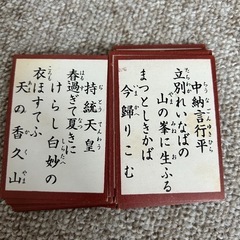 中納言行平
立別れいなばの
山の峯に生ふる
まつとしきかば
今帰りこむ
持統天皇
春過ぎて夏きに
けらし白妙の
衣ほすてふ
天の香久山